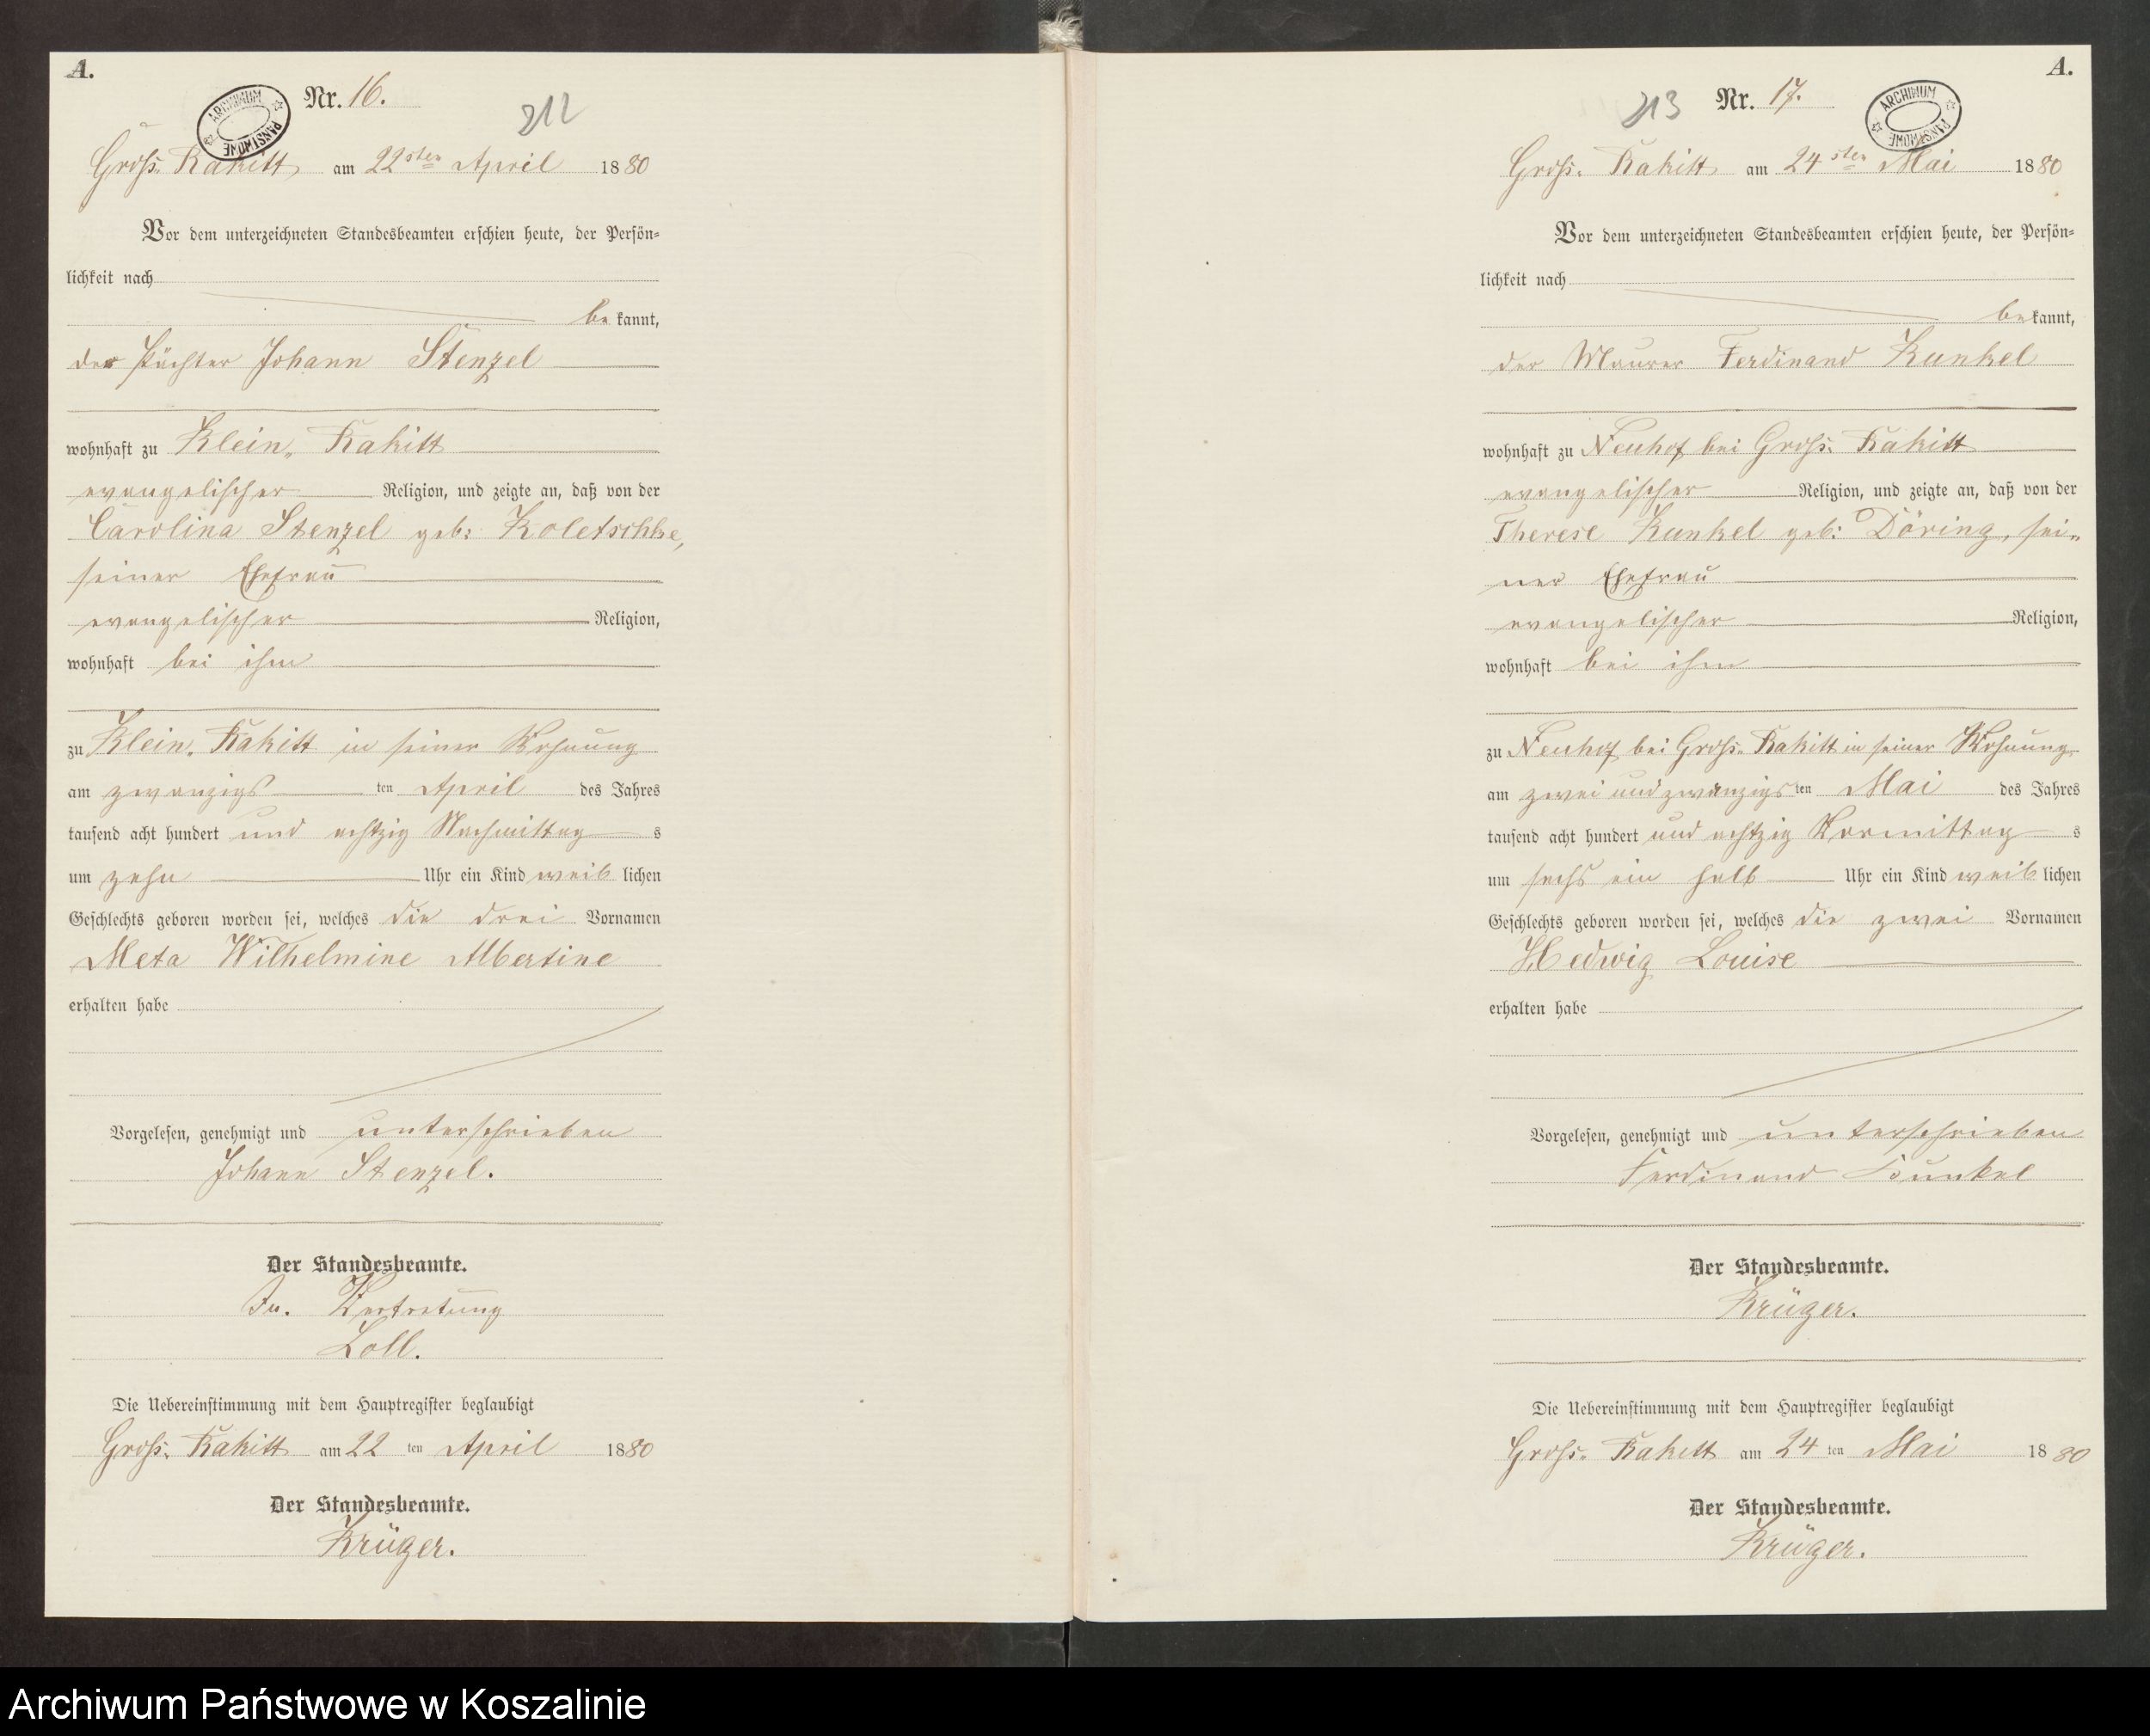 A.
ARCHIWUM PAŃSTWOWE
Nr. 16.
212
Groß. Rakitt am 22sten April 1880
Vor dem unterzeichneten Standesbeamten erschien heute, der Persön-
lichkeit nach
bekannt,
der Pächter Johann Stenzel
wohnhaft zu Klein. Rakitt
evangelischer Religion, und zeigte an, daß von der
Carolina Stenzel geb: Koletschke,
seiner Ehefrau
evangelischer Religion,
wohnhaft bei ihm
zu Klein. Rakitt in seiner Wohnung
am zwanzigsten April des Jahres
tausend acht hundert und achtzig Nachmittags
um zehn Uhr ein Kind weiblichen
Geschlechts geboren worden sei, welches die drei Vornamen
Meta Wilhelmine Albertine
erhalten habe
Vorgelesen, genehmigt und unterschrieben
Johann Stenzel.
Der Standesbeamte.
In. Vertretung
Loll.
Die Uebereinstimmung mit dem Hauptregister beglaubigt
Groß. Rakitt am 22 ten April 1880
Der Standesbeamte.
Krüger.
A.
213
Nr. 17.
ARCHIWUM PAŃSTWOWE
Groß. Rakitt am 24sten Mai 1880
Vor dem unterzeichneten Standesbeamten erschien heute, der Persön-
lichkeit nach
bekannt,
der Maurer Ferdinand Kunkel
wohnhaft zu Neuhof bei Groß. Rakitt
evangelischer Religion, und zeigte an, daß von der
Therese Kunkel geb: Döring, sei-
ner Ehefrau
evangelischer Religion,
wohnhaft bei ihm
zu Neuhof bei Groß. Rakitt in seiner Wohnung
am zwei und zwanzigsten Mai des Jahres
tausend acht hundert und achtzig Vormittags
um sechs ein halb Uhr ein Kind weiblichen
Geschlechts geboren worden sei, welches die zwei Vornamen
Hedwig Louise
erhalten habe
Vorgelesen, genehmigt und unterschrieben
Ferdinand Kunkel
Der Standesbeamte.
Krüger.
Die Uebereinstimmung mit dem Hauptregister beglaubigt
Groß. Rakitt am 24 ten Mai 1880
Der Standesbeamte.
Krüger.
Archiwum Państwowe w Koszalinie